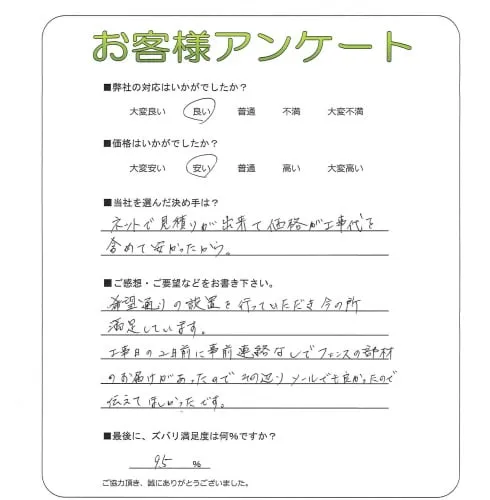 お客様アンケート
■弊社の対応はいかがでしたか？
大変良い 良い 普通 不満 大変不満
■価格はいかがでしたか？
大変安い 安い 普通 高い 大変高い
■当社を選んだ決め手は？
ネットで見積りが出来て価格が工事代を
含めて安かったから。
■ご感想・ご要望などをお書き下さい。
希望通りの設置を行っていただき今の所
満足しています。
工事日の2日前に事前連絡なしでフェンスの部材
のお届けがあったのでその辺りメールでも良かったので
伝えてほしかったです。
■最後に、ズバリ満足度は何%ですか？
95 %
ご協力頂き、誠にありがとうございました。